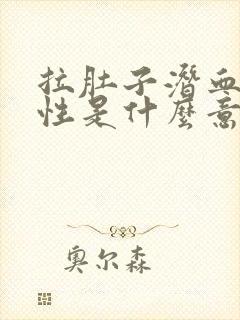 拉肚子潜血
性是什麽意
奥尔森